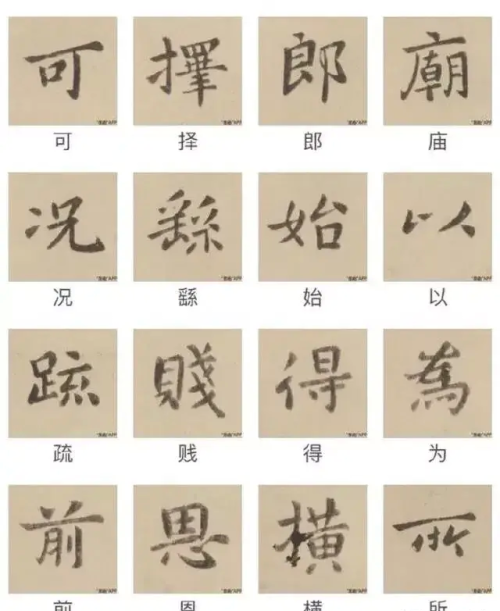 可 擇 郎 廟
可 择 郎 庙
况 繇 始 以
况 繇 始 以
疏 賤 得 為
疏 贱 得 为
前 恩 橫 所
前 恩 横 所